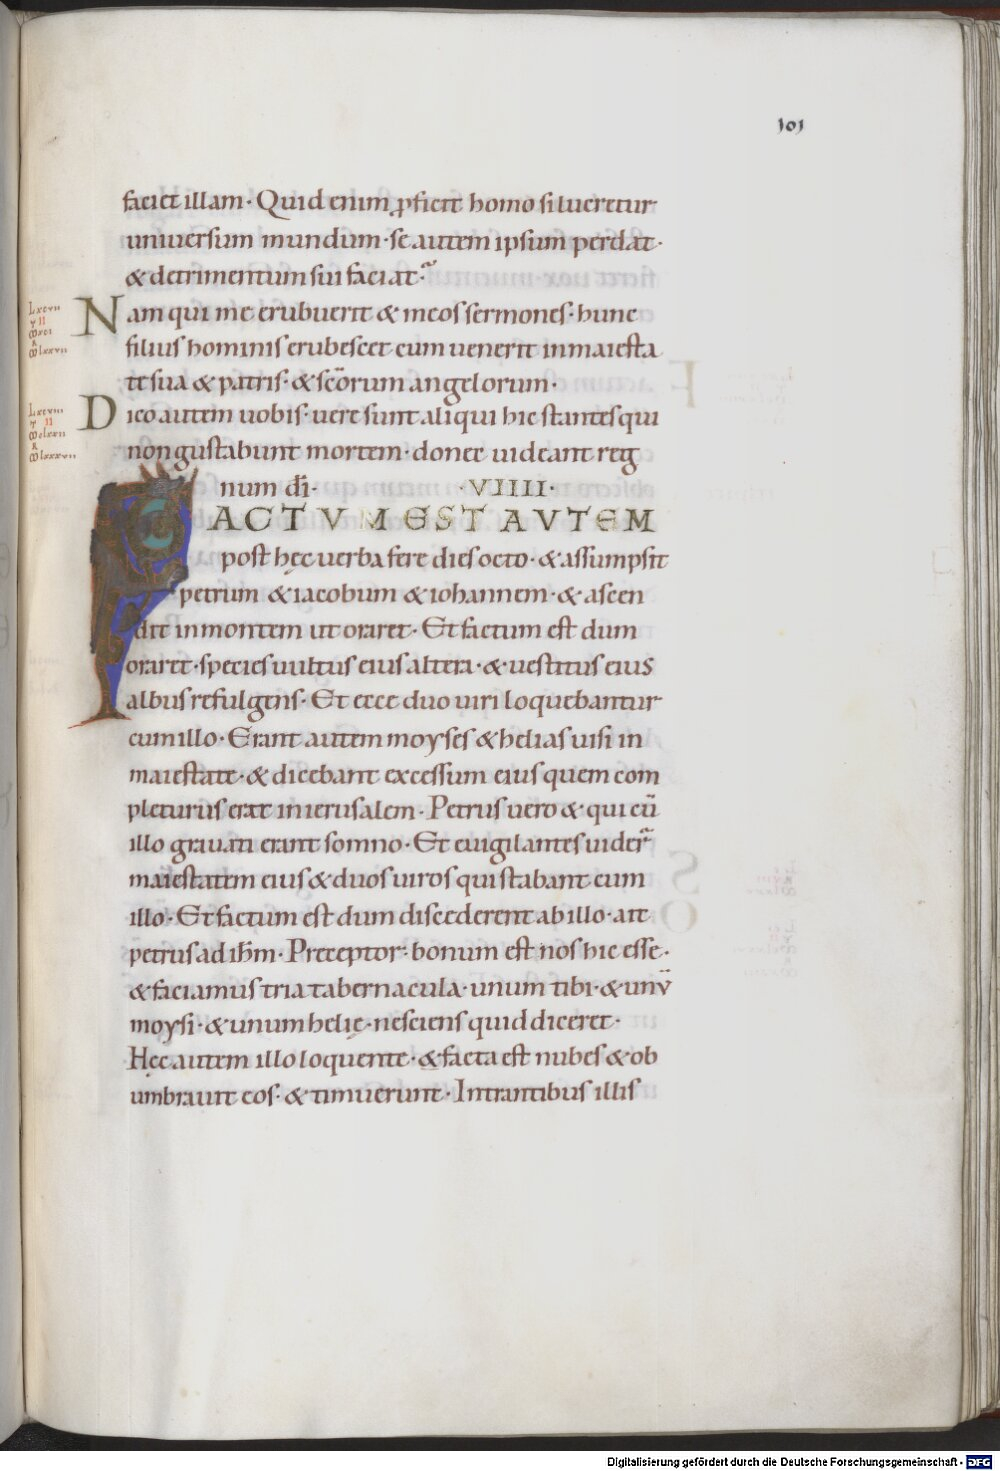 101
faciet illam· Quid enim ꝓficit homo si lucretur
universum mundum· se autem ipsum perdat·
& detrimentum sui faciat·
Nam qui me erubuerit & meos sermones· hunc
filius hominis erubescet cum uenerit in maiesta
te sua & patris· & scōrum angelorum·
Dico autem uobis· uere sunt aliqui hic stantes qui
non gustabunt mortem· donec uideant reg
num dī· ·VIIII·
FACTUM EST AUTEM
post hęc uerba fere dies octo· & assumpsit
petrum & iacobum & iohannem· & ascen
dit in montem ut oraret· Et factum est dum
oraret· species uultus eius altera· & uestitus eius
albus refulgens· Et ecce duo uiri loquebantur
cum illo· Erant autem moyses & helias uisi in
maiestate· & dicebant excessum eius quem com
pleturus erat in ierusalem· Petrus uero & qui cū
illo grauati erant somno· Et euigilantes uider̄
maiestatem eius & duos uiros qui stabant cum
illo· Et factum est dum discederent ab illo· ait
petrus ad ihm̄· Preceptor· bonum est nos hic esse·
& faciamus tria tabernacula· unum tibi· & unū
moysi· & unum helię· nesciens quid diceret·
Hęc autem illo loquente· & facta est nubes & ob
umbrauit eos· & timuerunt· Intrantibus illis
Digitalisierung gefördert durch die Deutsche Forschungsgemeinschaft - DFG